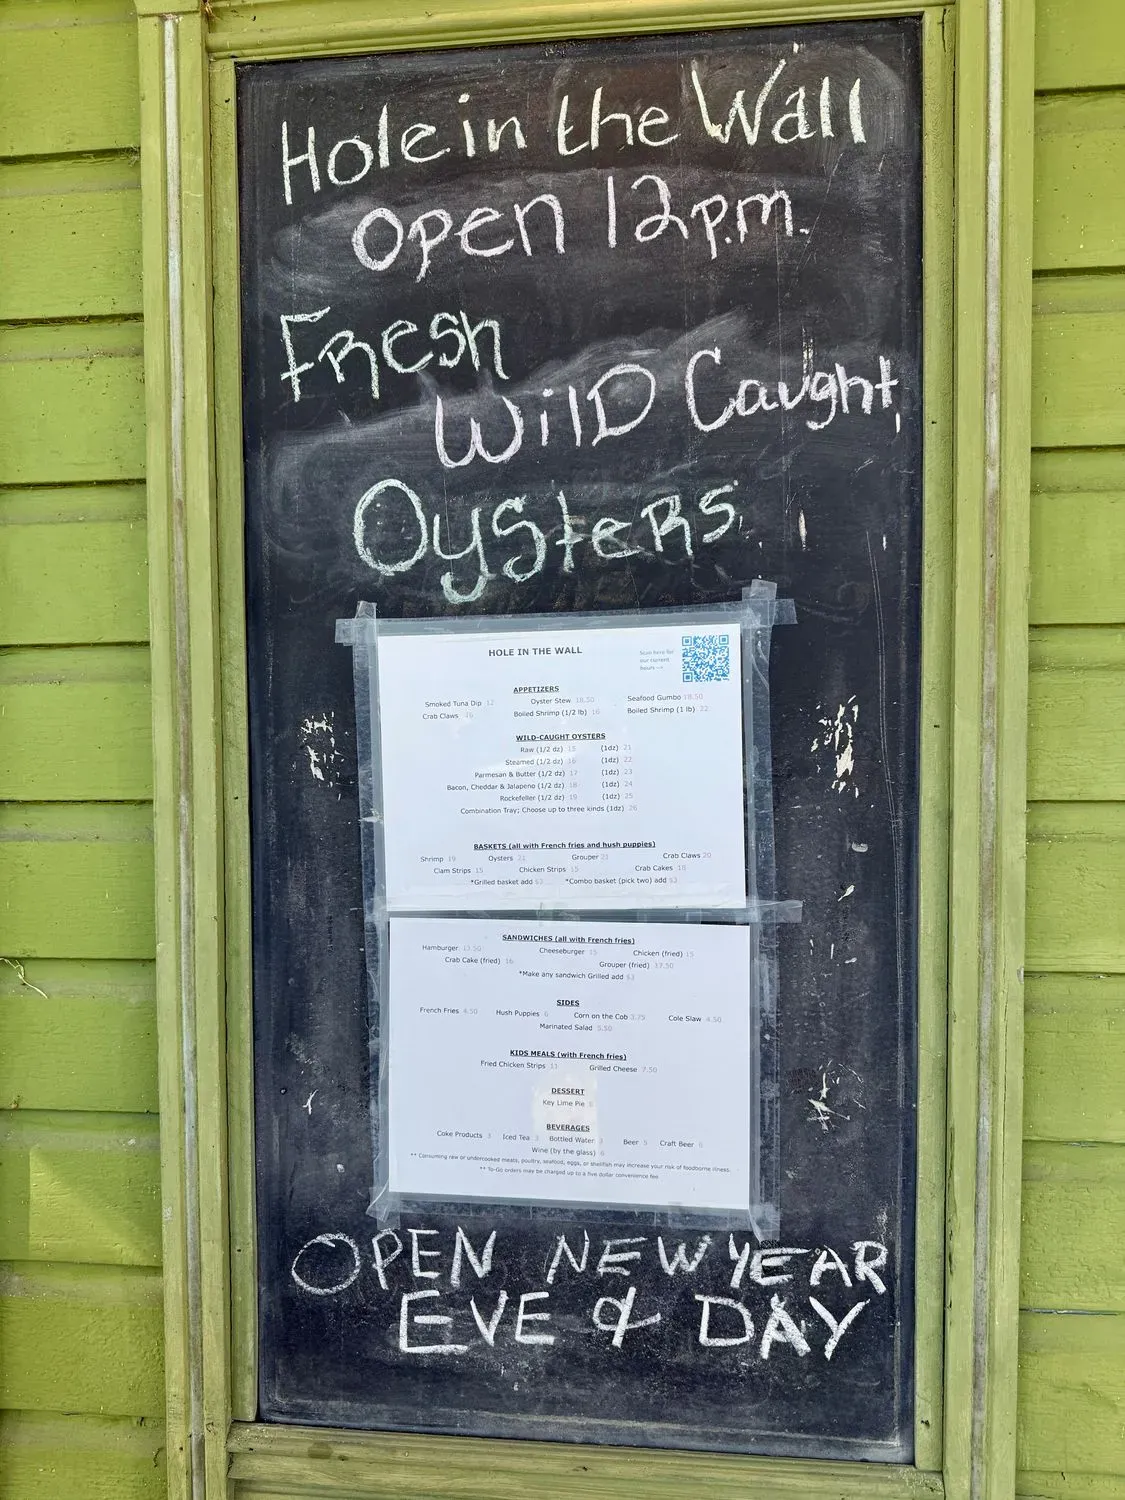 Hole in the Wall
Open 12 p.m.
Fresh
Wild Caught
Oysters
HOLE IN THE WALL
Scan here for
our current
hours -->
APPETIZERS
Smoked Tuna Dip 12 Oyster Stew 18.50 Seafood Gumbo 18.50
Crab Claws 16 Boiled Shrimp (1/2 lb) 16 Boiled Shrimp (1 lb) 22
WILD-CAUGHT OYSTERS
Raw (1/2 dz) 15 (1dz) 21
Steamed (1/2 dz) 16 (1dz) 22
Parmesan & Butter (1/2 dz) 17 (1dz) 23
Bacon, Cheddar & Jalapeno (1/2 dz) 18 (1dz) 24
Rockefeller (1/2 dz) 19 (1dz) 25
Combination Tray; Choose up to three kinds (1dz) 26
BASKETS (all with French fries and hush puppies)
Shrimp 19 Oysters 21 Grouper 21 Crab Claws 20
Clam Strips 15 Chicken Strips 15 Crab Cakes 18
*Grilled basket add $3 *Combo basket (pick two) add $3
SANDWICHES (all with French fries)
Hamburger 13.50 Cheeseburger 15 Chicken (fried) 15
Crab Cake (fried) 16 Grouper (fried) 17.50
*Make any sandwich Grilled add $3
SIDES
French Fries 4.50 Hush Puppies 6 Corn on the Cob 3.75 Cole Slaw 4.50
Marinated Salad 5.50
KIDS MEALS (with French fries)
Fried Chicken Strips 11 Grilled Cheese 7.50
DESSERT
Key Lime Pie
BEVERAGES
Coke Products 3 Iced Tea 3 Bottled Water 3 Beer 5 Craft Beer 6
Wine (by the glass) 6
** Consuming raw or undercooked meats, poultry, seafood, eggs, or shellfish may increase your risk of foodborne illness.
** To-Go orders may be charged up to a five dollar convenience fee
OPEN NEW YEAR
EVE & DAY